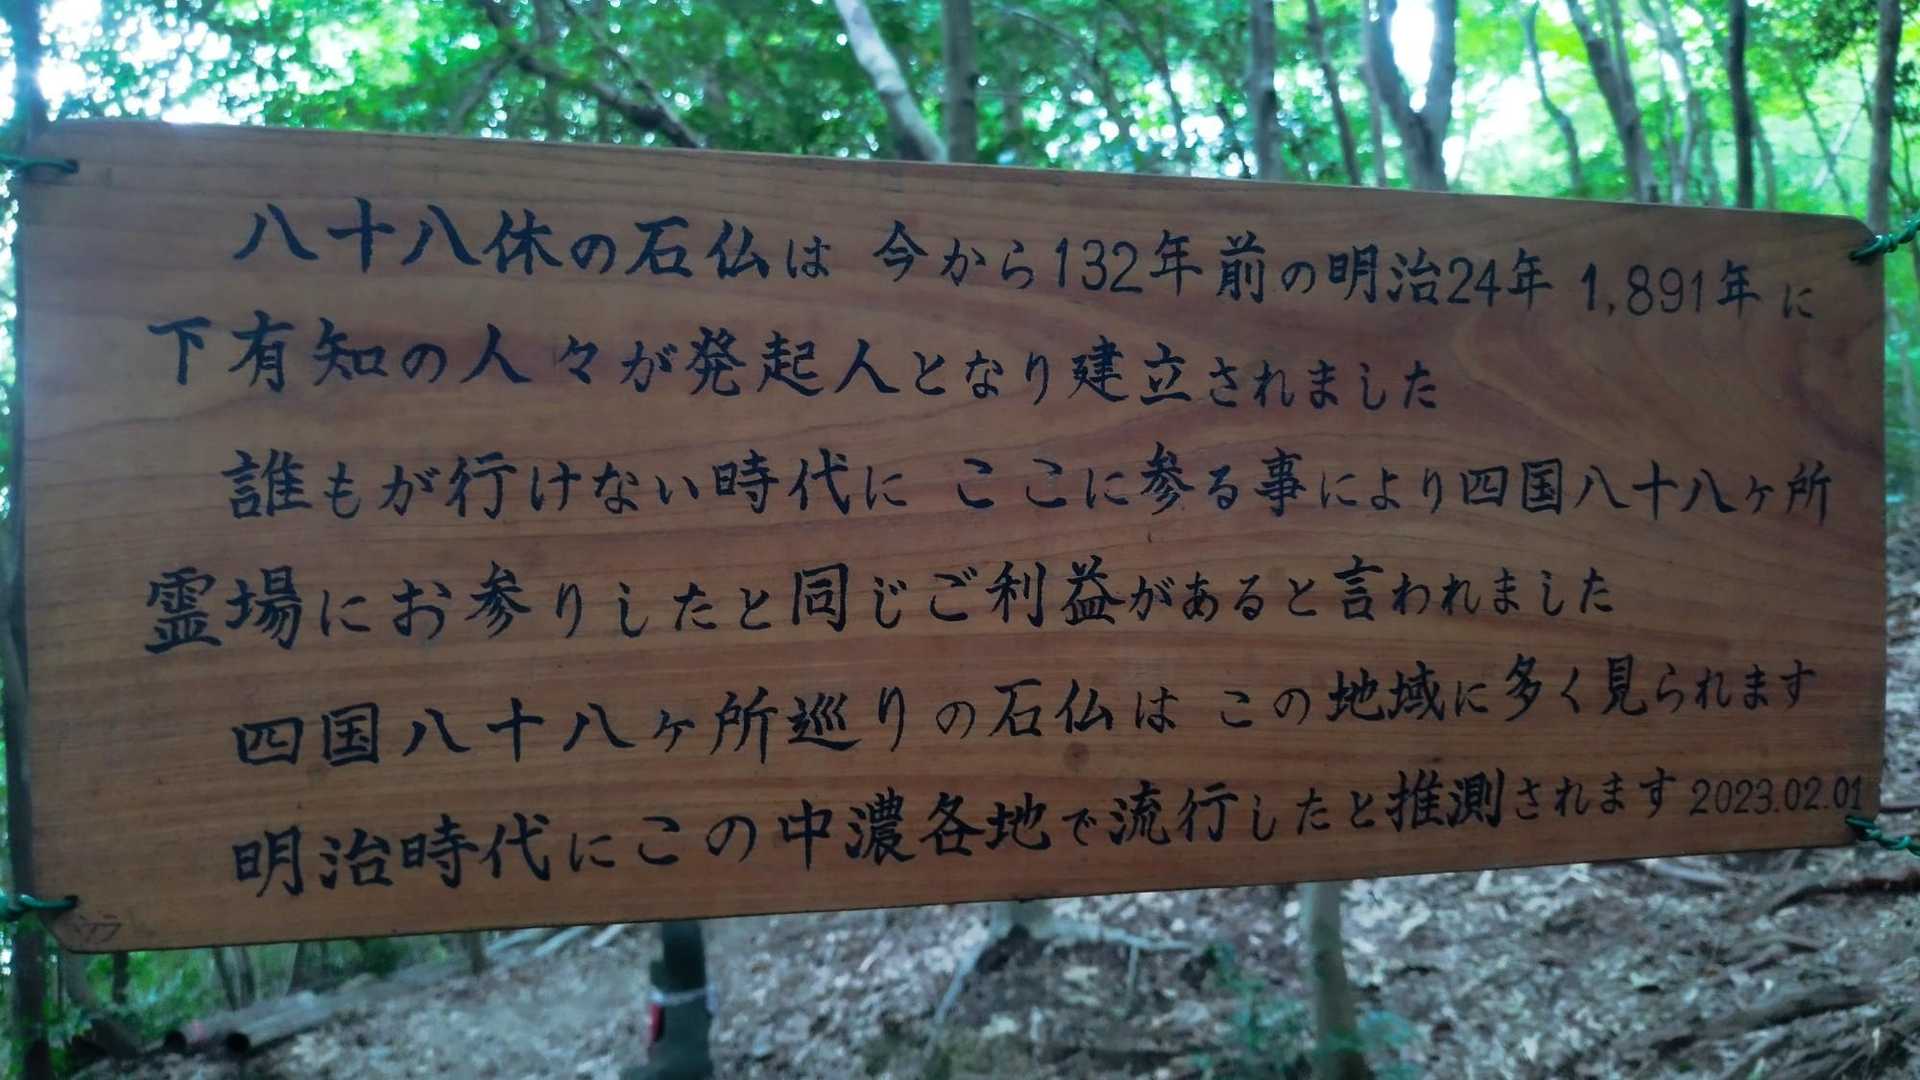 八十八休の石仏は 今から132年前の明治24年 1,891年に
下有知の人々が発起人となり建立されました
誰もが行けない時代に ここに参る事により四国八十八ヶ所
霊場にお参りしたと同じご利益があると言われました
四国八十八ヶ所巡りの石仏は この地域に多く見られます
明治時代にこの中濃各地で流行したと推測されます 2023.02.01